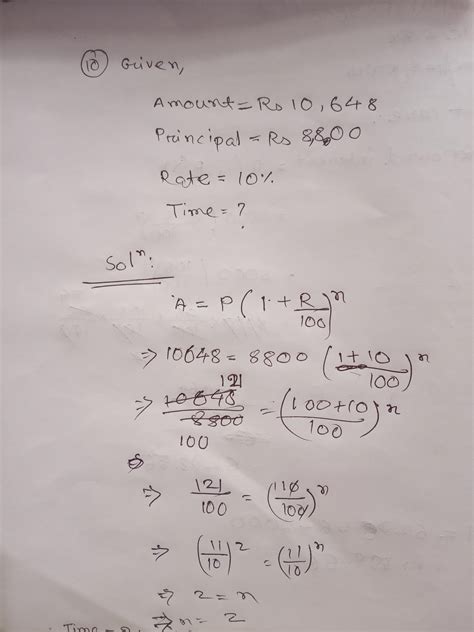 (10) Given,
Amount = Rs 10,648
Principal = Rs 8800
Rate = 10%
Time = ?
Solⁿ:
A = P(1 + R/100)ⁿ
⇒ 10648 = 8800 (1 + 10/100)ⁿ
121
⇒ 10648/8800 = (100+10/100)ⁿ
100
⇒ 121/100 = (110/100)ⁿ
⇒ (11/10)² = (11/10)ⁿ
⇒ 2 = n
⇒ n = 2
Time =